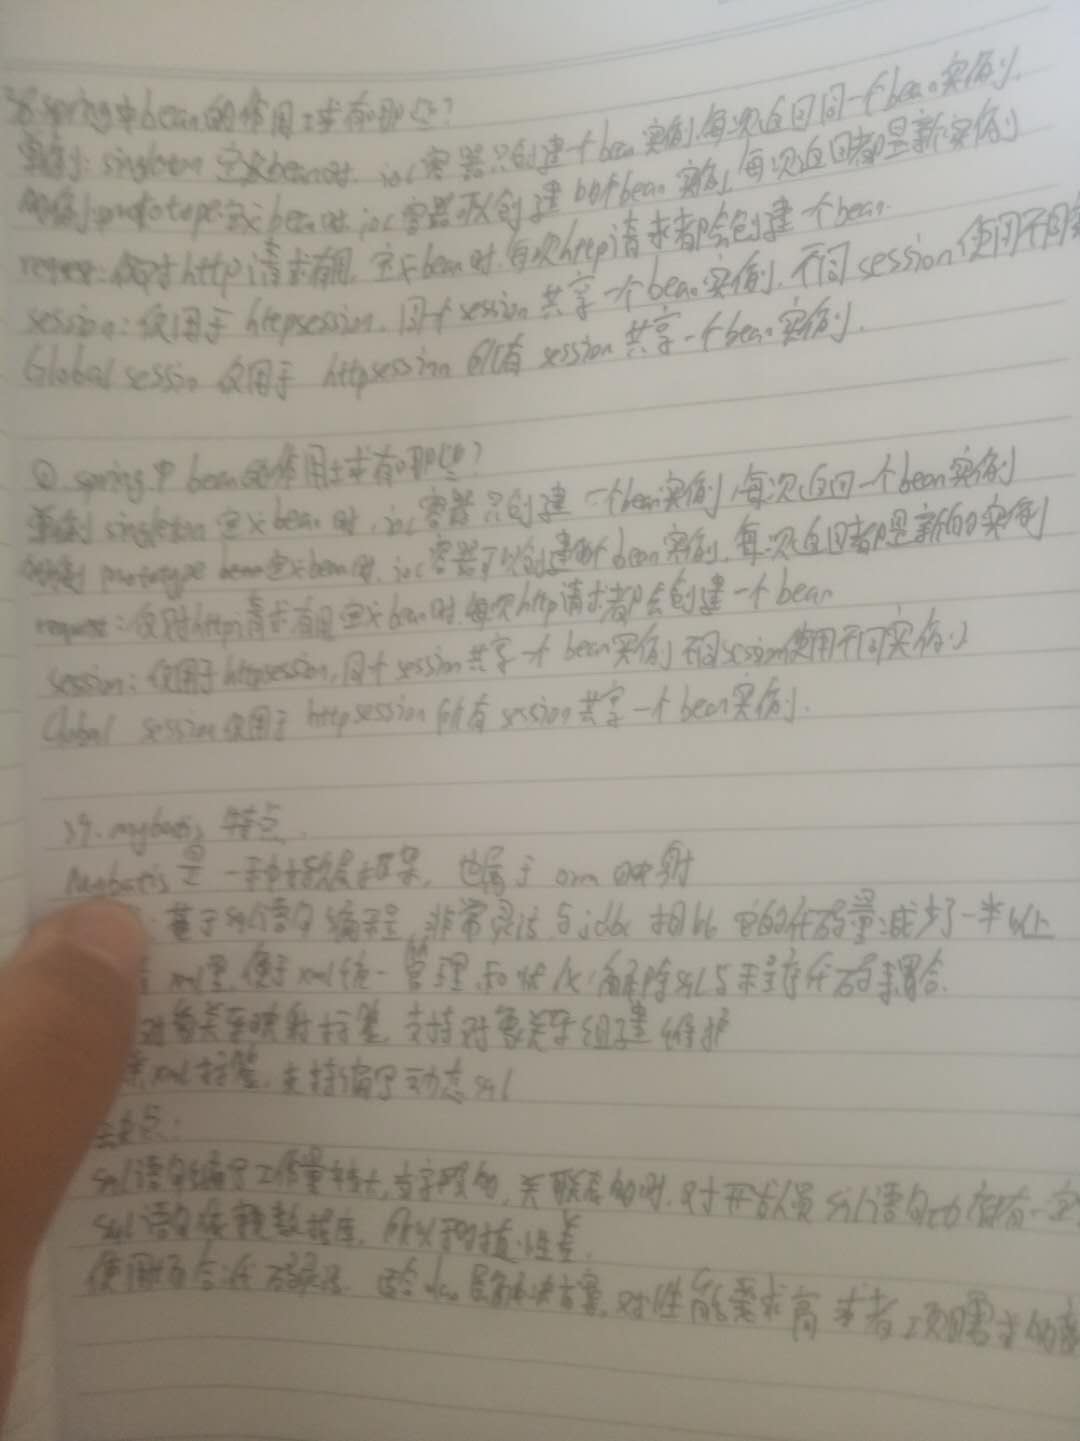 spring中bean的作用域有哪些?
单例: singleton 定义bean时, ioc容器只创建一个bean实例,每次返回同一个bean实例.
prototype 定义bean时,ioc容器可创建多个bean实例,每次返回都是新实例
request:仅对http请求有用,定义bean时,每次http请求都会创建一个bean.
session:仅用于httpsession,同个session共享一个bean实例,不同session使用不同
Global session 仅用于 httpsession 所有session共享一个bean实例.
spring中bean的作用域有哪些?
单例 singleton 定义bean时,ioc容器只创建一个bean实例,每次返回一个bean实例
prototype 定义bean时,ioc容器可以创建多个bean实例,每次返回都是新的实例
request:仅对http请求有用定义bean时,每次http请求都会创建一个bean
session:仅用于httpsession,同个session共享一个bean实例不同session使用不同实例
Global session仅用于httpsession所有session共享一个bean实例.
mybatis特点.
Mybatis是一种持久层框架, 也属于orm映射
基于sql语句编程,非常灵活,与jdbc相比 代码量减少了一半以上
xml里,便于xml统一管理和 解除sql与程序代码耦合.
对象关系映射标签,支持对象关系组建维护
xml标签,支持编写动态sql
缺点:
sql语句编写工作量较大,字段多,关联表多时,对开发人员sql语句 都有一定
sql语句依赖数据库,所以移植性差.
使用场合 解决方案,对性能要求高或者项目需求